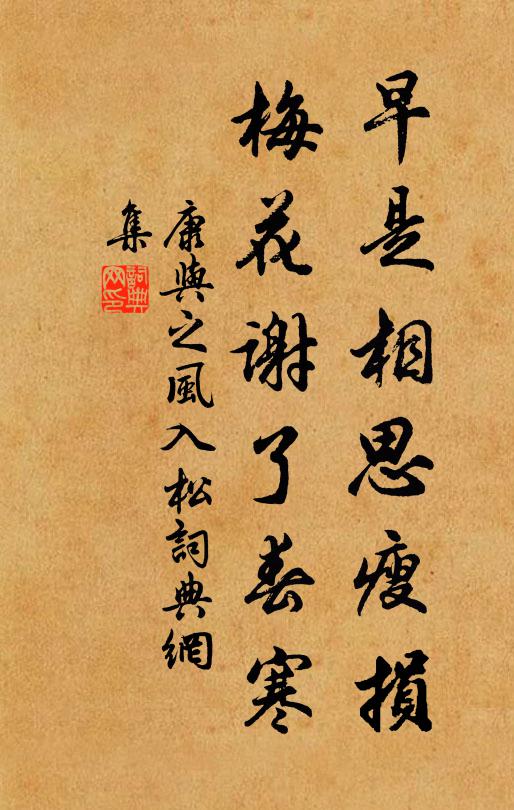 早是相思瘦損
梅花謝了春寒
康與之風入松詞典網
集
詞典
网印